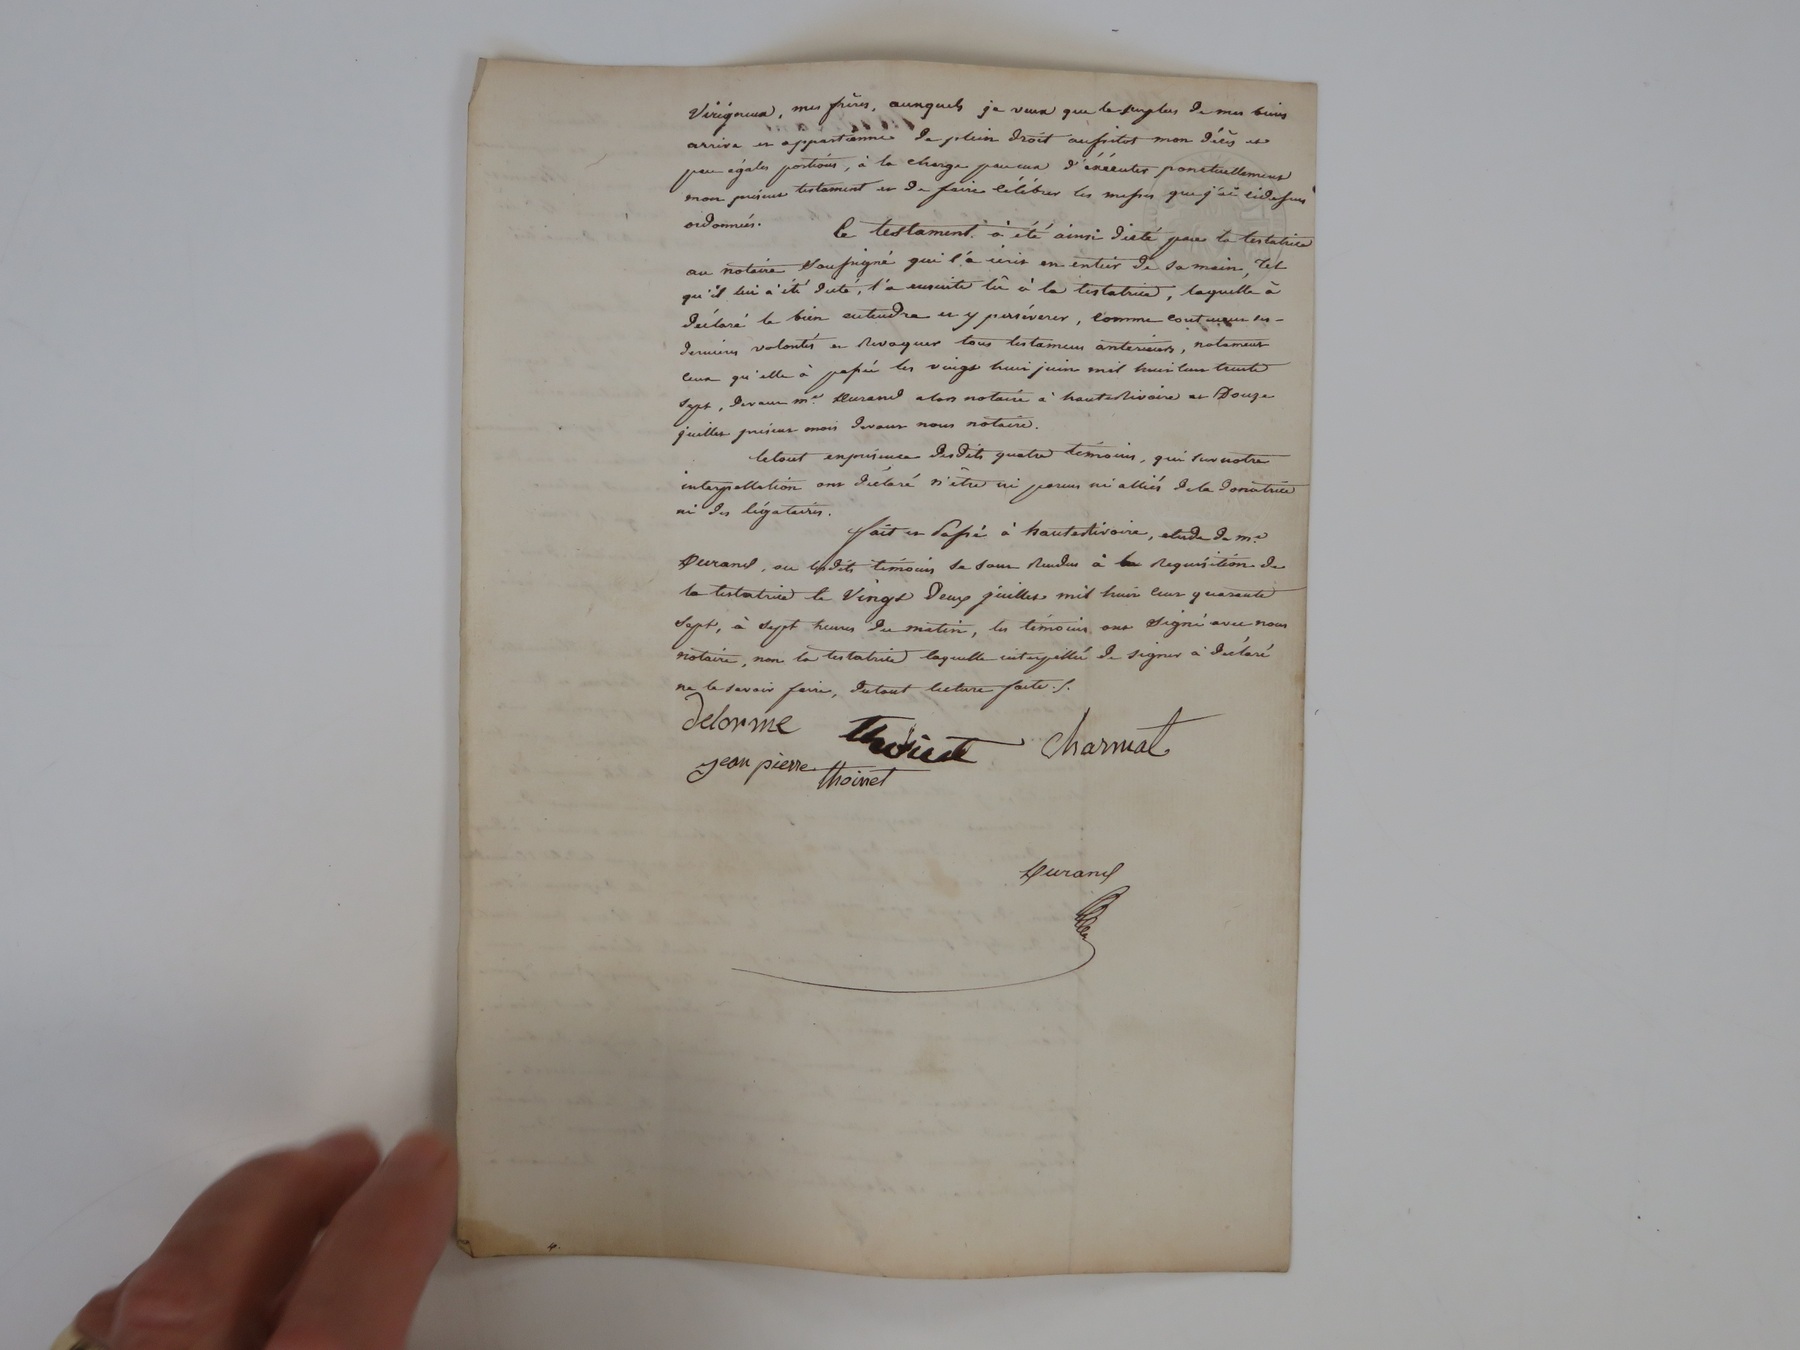 Virigneux, mes frères, auxquels je veux que le surplus de mes biens
arrive et appartienne de plein droit aussitot mon décès et
par égales portions, à la charge par eux d'éxécuter ponctuellement
mon présent testament et de faire célébrer les messes que j'ai cidessus
ordonnées.
Ce testament à été ainsi dicté par la testatrice
au notaire soussigné qui l'a écrit en entier de sa main, tel
qu'il lui a été dicté, l'a ensuite lû à la testatrice, laquelle à
déclaré le bien entendre et y persévérer, comme contenant ses
dernières volontés et révoquer tous testamens antérieurs, notament
ceux qu'elle à passés les vingt huit juin mil huit cent trente
sept, devant me. Durand alors notaire à hauterivoire et Douze
juillet présent mois devant nous notaire.
letout enprésence desdits quatre témoins, qui sur notre
interpellation ont déclaré n'être ni parens ni alliés de la donatrice
ni des légataires.
fait et passé à hauterivoire, etude de me.
Durand, ou lesdits témoins se sont rendus à la réquisition de
la testatrice le vingt deux juillet mil huit cent quarante
sept, à sept heures du matin, les témoins ont signé avec nous
notaire, non la testatrice laquelle interpellée de signer à déclaré
ne le savoir faire, dutout lecture faite ./.
Delorme Thoinet Charmat
jean pierre thoinet
Durand
4.